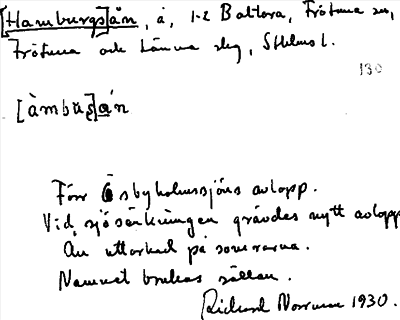 [Hamburgs]ån, å, 1-2 Baltora, Frötuna sn,
Frötuna och Länna slg, Sthlms l.
130
[àmbùʂ]án
Förr Ösbyholmssjöns avlopp.
Vid sjösänkningen grävdes nytt avlopp
Ån uttorkad på somrarna.
Namnet brukas sällan.
Rickard Norrman 1930.